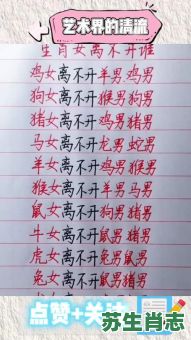 艺术界的清流
生肖女离不开谁
鸡女离不开羊男鸡男
狗女离不开猴男狗男
猪女离不开猪男猪男
马女离不开龙男蛇男
羊女离不开鸡男猴男
猴女离不开羊男马男
鼠女离不开狗男猪男
牛女离不开鼠男猪男
虎女离不开兔男鼠男
兔女离不开鼠男猪男
点赞+关注
苏生肖志